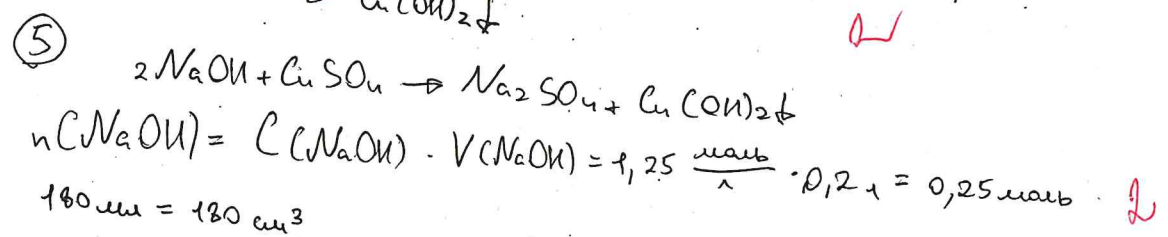 Cu(OH)₂↓
⑤
2NaOH + CuSO₄ → Na₂SO₄ + Cu(OH)₂↓
n(NaOH) = C(NaOH) · V(NaOH) = 1,25 моль/л · 0,2 л = 0,25 моль · 2
180 мл = 180 см³